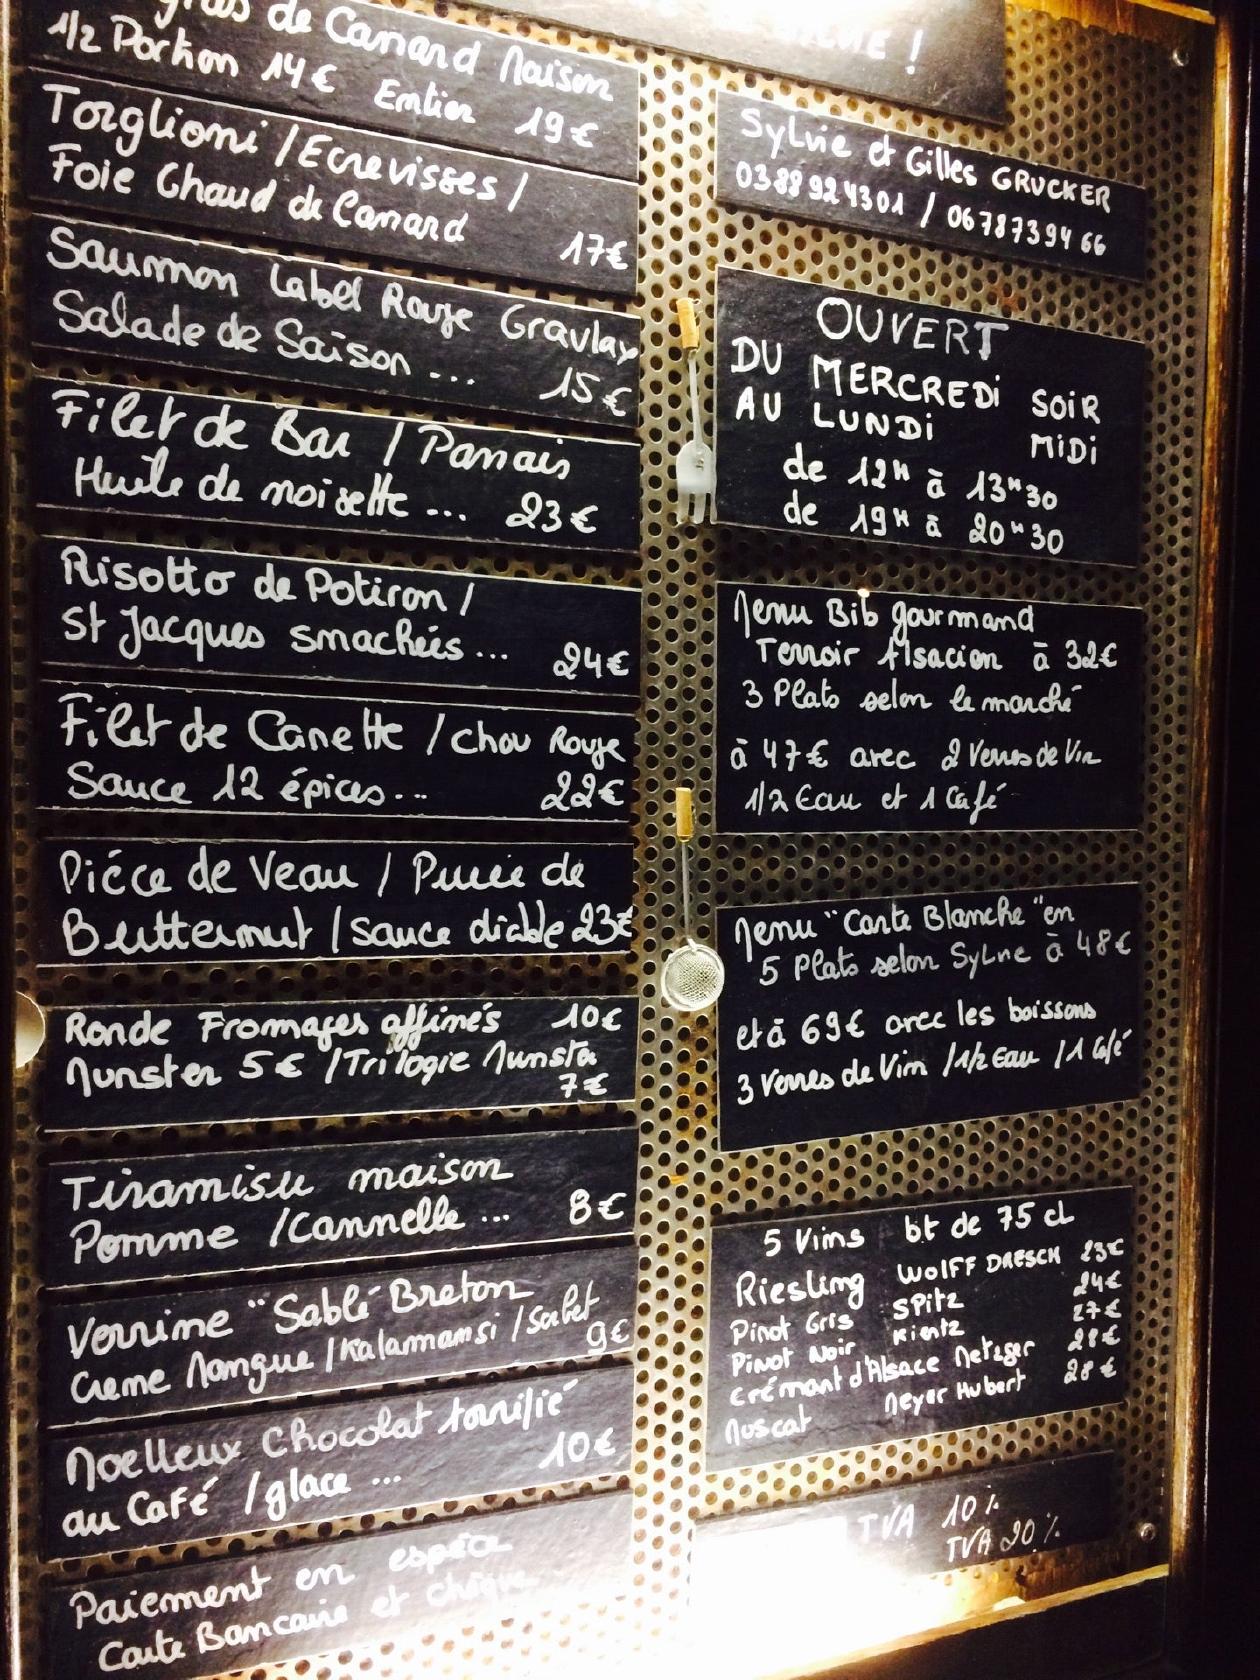 gras de Canard Maison
1/2 Portion 14€ Entier 19€
Torglioni / Ecrevisses /
Foie Chaud de Canard 17€
Saumon Label Rouge Gravlax
Salade de Saison ... 15€
Filet de Bar / Panais
Huile de noisette ... 23€
Risotto de Potiron /
St Jacques smachées ... 24€
Filet de Canette / chou Rouge
Sauce 12 épices... 22€
Piéce de Veau / Purée de
Butternut / sauce diable 23€
Ronde Fromages affinés 10€
Munster 5€ / Trilogie Munster
7€
Tiramisu maison
Pomme / Cannelle ... 8€
Verrine "Sablé Breton
Creme Mangue / Kalamansi / Sorbet
9€
Moelleux Chocolat torrifié
au Café / glace ... 10€
Paiement en espèce
Carte Bancaire et chèque
!
Sylvie et Gilles GRUCKER
0388924301 / 0678739466
OUVERT
DU MERCREDi SOiR
AU LUNDi MiDi
de 12H à 13H30
de 19H à 20H30
Menu Bib gourmand
Terroir Alsacien à 32€
3 Plats selon le marché
à 47€ avec 2 Verres de Vin
1/2 Eau et 1 Café
Menu "Carte Blanche" en
5 Plats selon Sylvie à 48€
et à 69€ avec les boissons
3 Verres de Vin / 1/2 Eau / 1 Café
5 Vins bt de 75 cl
Riesling WOLFF DRESCH 23€
Pinot Gris SPitz 24€
Pinot Noir Kientz 27€
Crémant d'Alsace Metzger 28€
Muscat Meyer Hubert 28€
TVA 10%
TVA 20%